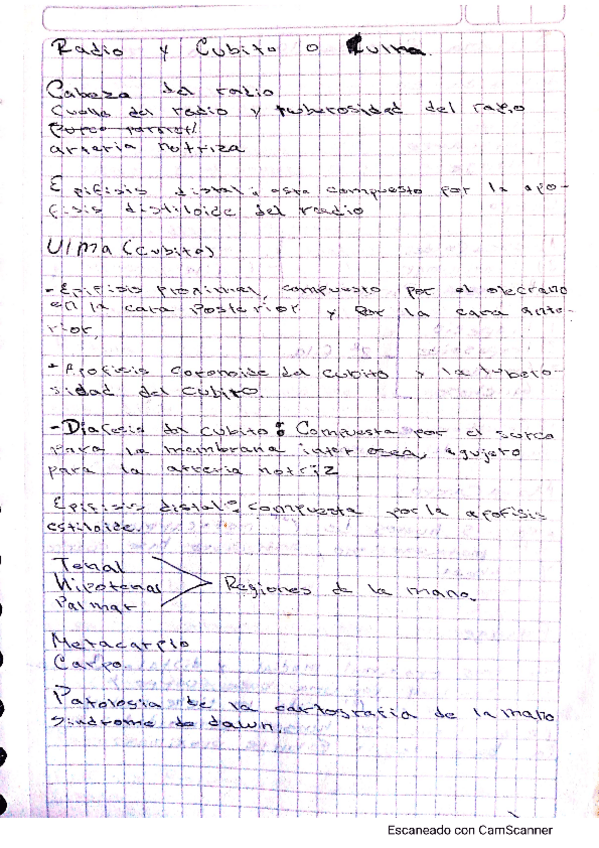 Radio y Cubito o Culna.
Cabeza del radio
Cuello del radio y tuberosidad del radio
arteria notriza
Epifisis distal; esta compuesto por la apo-
fisis distiloide del radio
Ulma (Cubito)
-Epifisis proximal, compuesto por el olecrano
en la cara Posterior y por la cara ante-
rior,
+ Apofisis coronoide del cubito y la tubero-
sidad del cubito.
-Diafesis del cubito: Compuesta por el surco
para la membrana inter osea, agujero
para la arteria notriz
Epifisis distal: compuesta por la apofisis
estiloide.
Tenal
Hipotenal
Palmar
Regiones de la mano.
Metacarpio
Carpo.
Patologia de la de la mano
Sindrome de dawn.
Escaneado con CamScanner